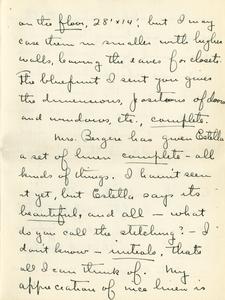 on the floor, 28'x14'; but I may
case them in smaller with higher
walls, leaving the eaves for closets.
The blueprint I sent you gives
the dimensions, positions of doors
and windows, etc., complete.
Mrs. Bergere has given Estella
a set of linen complete - all
kinds of things. I haven't seen
it yet, but Estella says its
beautiful, and all - what
do you call the stitching? - I
don't know - initials, thats
all I can think of. My
appreciation of nice linen is